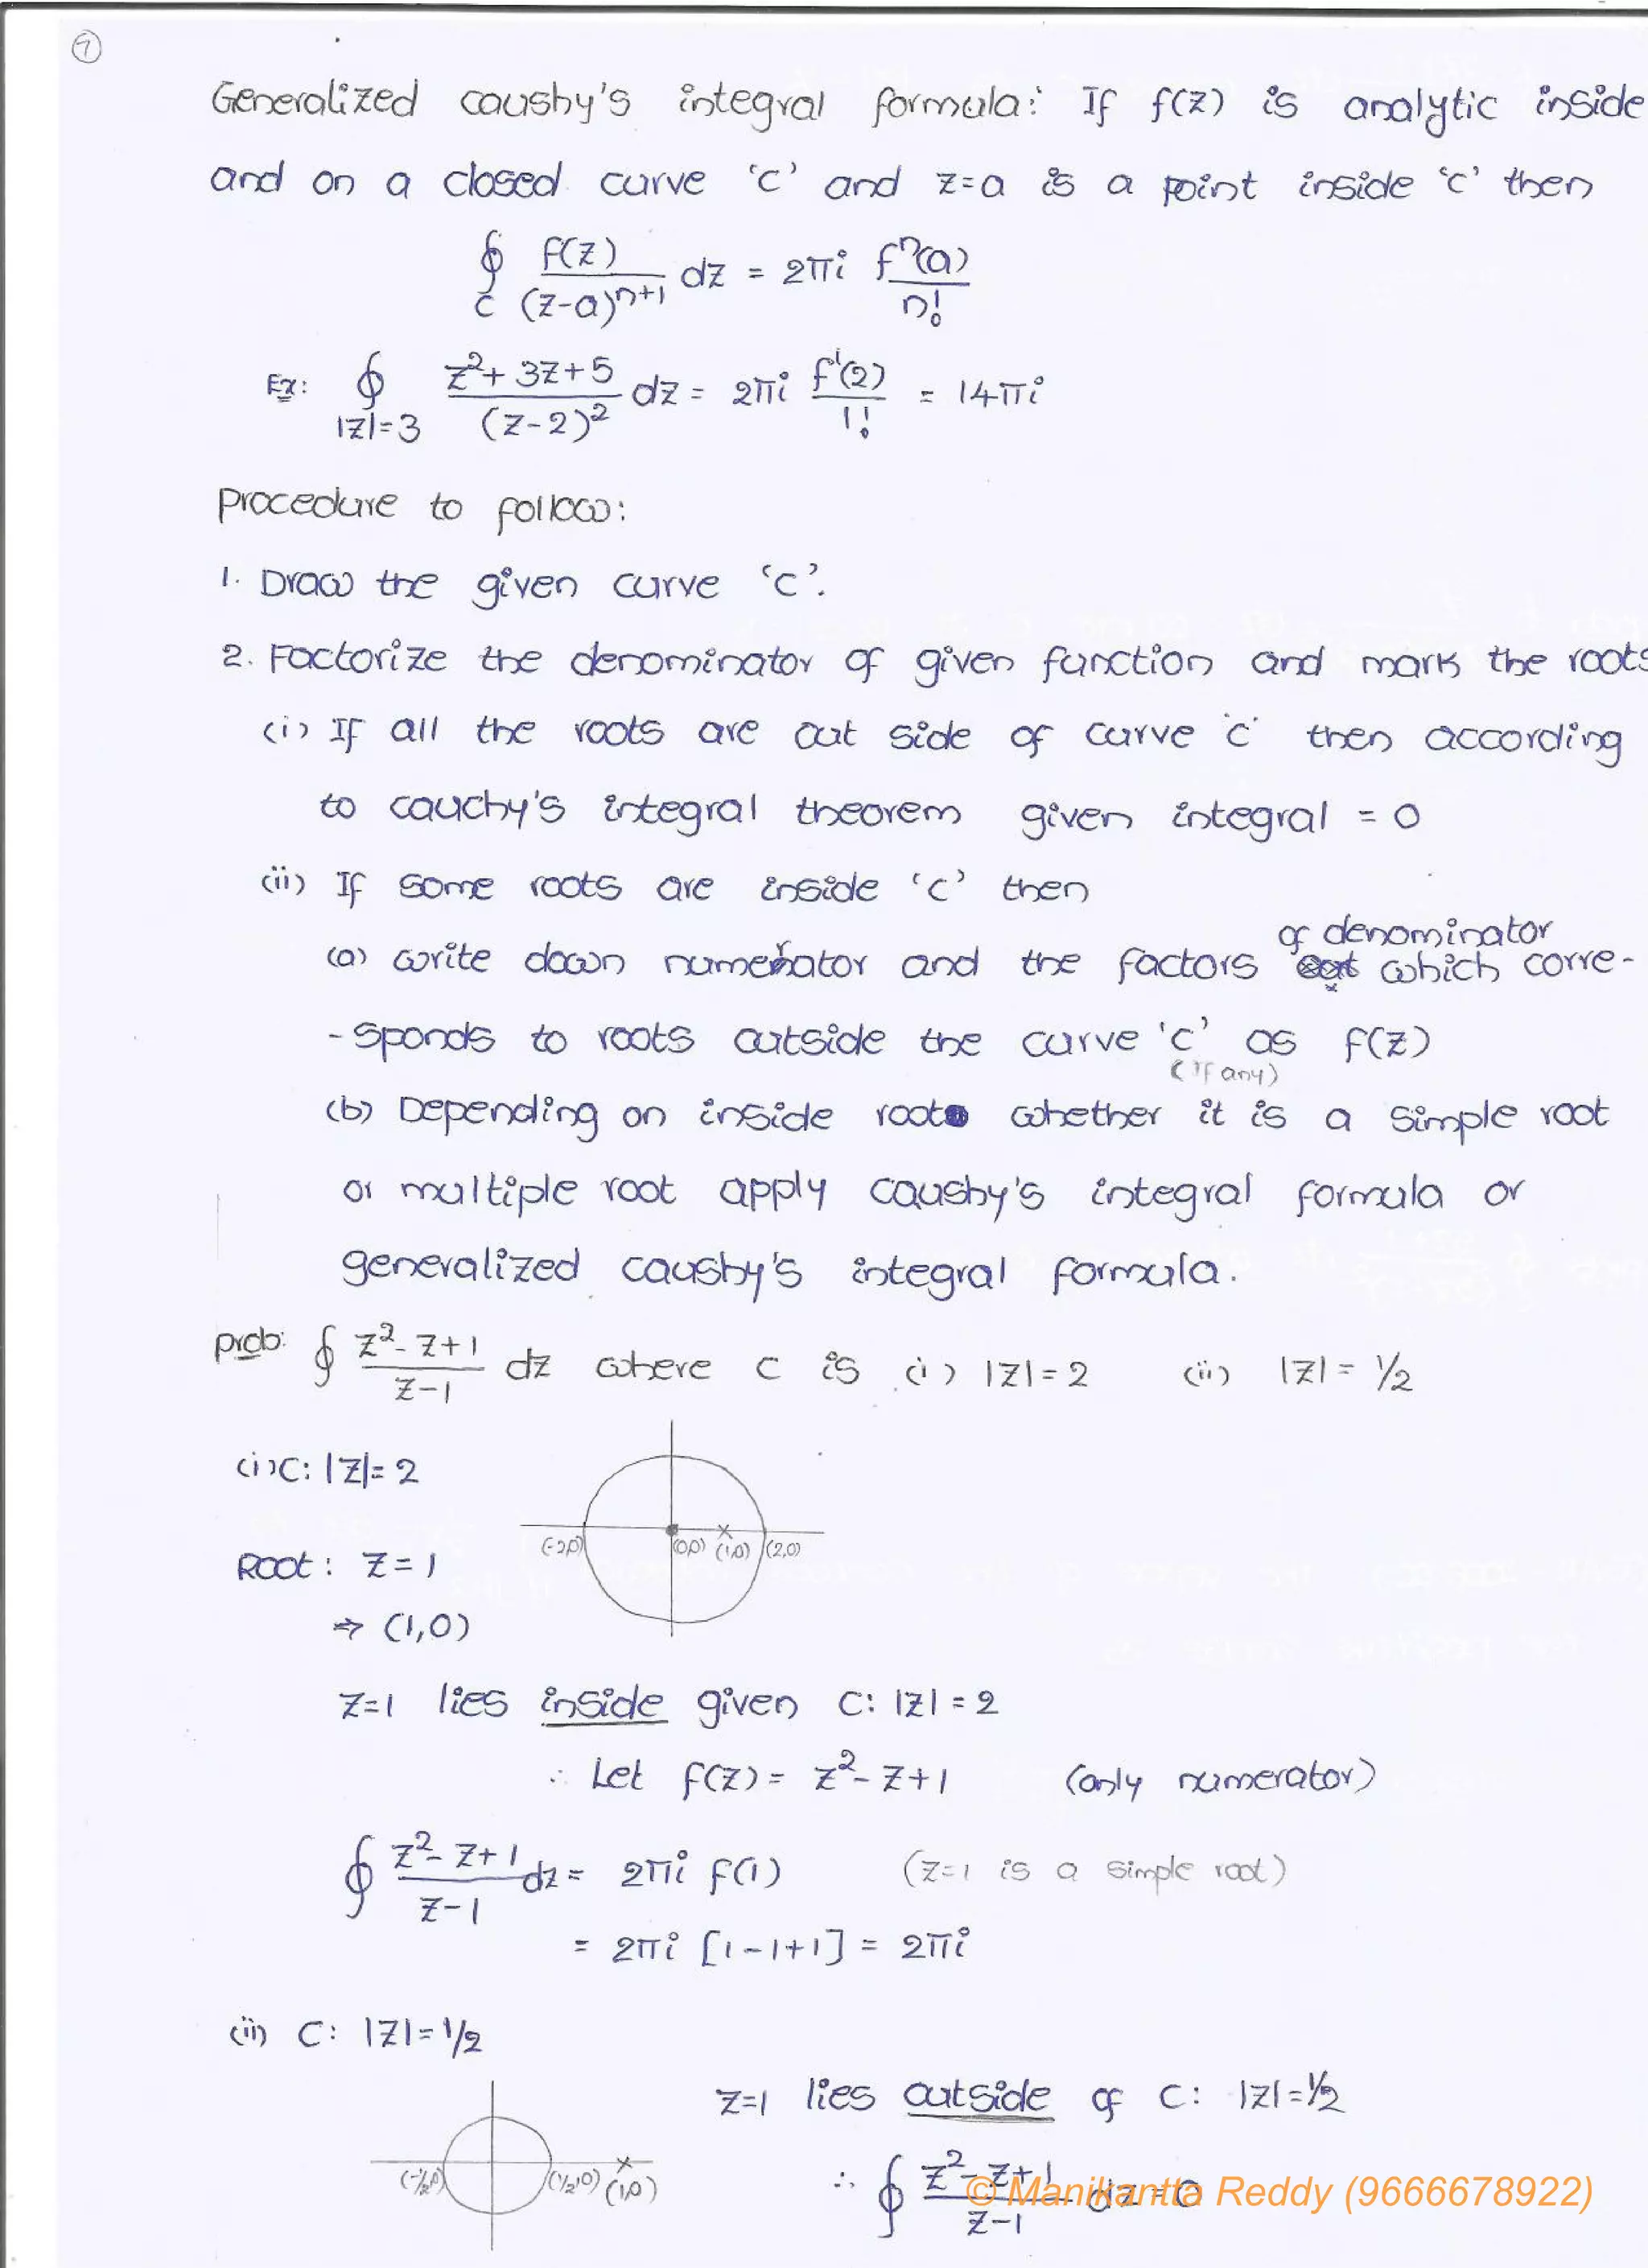 7
Generalized caushy's integral formula: If f(z) is analytic inside
and on a closed curve 'c' and z=a is a point inside 'c' then
∮_C f(z)/(z-a)^{n+1} dz = 2πi f^n(a)/n!
Ex: ∮_{|z|=3} (z²+3z+5)/(z-2)² dz = 2πi f'(2)/1! = 14πi
procedure to follow:
1. Draw the given curve 'c'.
2. Factorize the denominator of given function and mark the roots
(i) If all the roots are out side of curve 'c' then according
to cauchy's integral theorem given integral = 0
(ii) If some roots are inside 'c' then
of denominator
(a) write down numerator and the factors which corre-
-sponds to roots outside the curve 'c' as f(z)
(If any)
(b) Depending on inside root whether it is a simple root
or multiple root apply caushy's integral formula or
generalized caushy's integral formula.
prob: ∮ (z²-z+1)/(z-1) dz where C is (i) |z|=2 (ii) |z|=1/2
(i) C: |z|=2
(-2,0) (0,0) (1,0) (2,0)
Root: z=1
⇒ (1,0)
z=1 lies inside given C: |z|=2
∴ Let f(z) = z²-z+1 (only numerator)
∮ (z²-z+1)/(z-1) dz = 2πi f(1) (z=1 is a simple root)
= 2πi [1-1+1] = 2πi
(ii) C: |z|=1/2
z=1 lies outside of C: |z|=1/2
(-1/2,0) (1/2,0) (1,0)
∴ ∮ (z²-z+1)/(z-1) dz = 0
© Manikantta Reddy (9666678922)